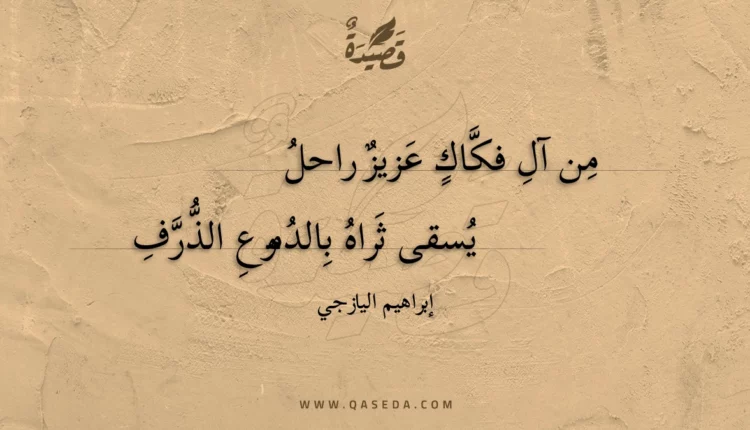 قَصِيدَةٌ
مِن آلِ فكَّاكٍ عَزيزٌ راحلُ
يُسقى ثَراهُ بِالدُموعِ الذُّرَّفِ
إبراهيم اليازجي
WWW.QASEDA.COM